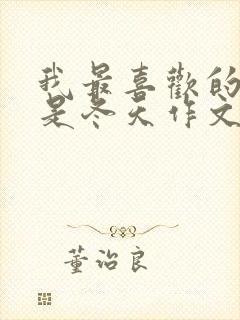 我最喜歡的
是冬天作文
董治良